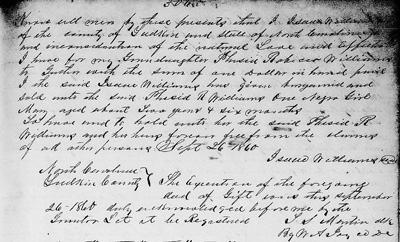 Know all men by these presents that I Isaac Williams
of the county of Yadkin and State of North Carolina
and in consideration of the natural Love and affection
I have for my Grandaughter Phesid Williams
with the sum of one Dollar in hand paid
I the said Isaac Williams has given bargained and
sold unto the said Phesid R Williams One Negro Girl
Mary aged about two years & six months
To have and to hold unto her the said Phesid R
Williams and her heirs forever free from the claims
of all other persons Sept 26 1860
Isaac Williams
North Carolina
Yadkin County } The Execution of the foregoing
deed of Gift was this September
26 1860 duly acknowledged before me by the
Grantor Let it be Registered
By